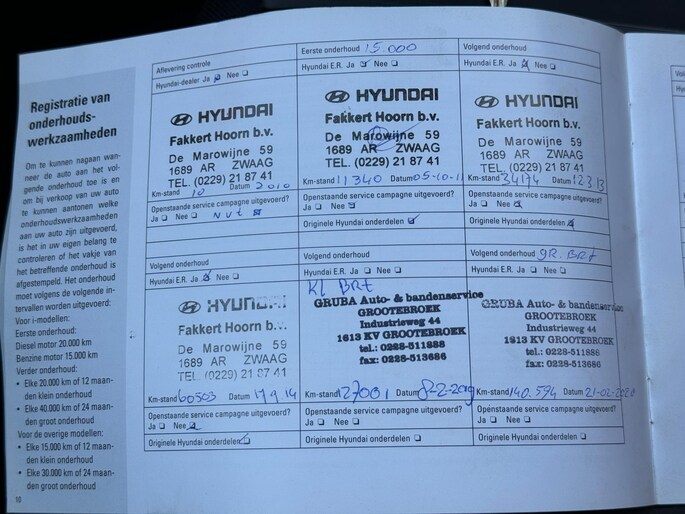 Registratie van
onderhouds-
werkzaamheden
Om te kunnen nagaan wan-
neer de auto aan het vol-
gende onderhoud toe is en
om bij verkoop van uw auto
te kunnen aantonen welke
onderhoudswerkzaamheden
aan uw auto zijn uitgevoerd,
is het in uw eigen belang te
controleren of het vakje van
het betreffende onderhoud is
afgestempeld. Het onderhoud
moet volgens de volgende in-
tervallen worden uitgevoerd:
Voor i-modellen:
Eerste onderhoud:
Diesel motor 20.000 km
Benzine motor 15.000 km
Verder onderhoud:
• Elke 20.000 km of 12 maan-
den klein onderhoud
• Elke 40.000 km of 24 maan-
den groot onderhoud
Voor de overige modellen:
• Elke 15.000 km of 12 maan-
den klein onderhoud
• Elke 30.000 km of 24 maan-
den groot onderhoud
10
Aflevering controle
Hyundai-dealer Ja Nee
HYUNDAI
Fakkert Hoorn b.v.
De Marowijne 59
1689 AR ZWAAG
TEL. (0229) 21 87 41
Km-stand 10 Datum 2010
Openstaande service campagne uitgevoerd?
Ja Nee NVT
Eerste onderhoud 15.000
Hyundai E.R. Ja Nee
HYUNDAI
Fakkert Hoorn b.v.
De Marowijne 59
1689 AR ZWAAG
TEL. (0229) 21 87 41
Km-stand 11340 Datum 05-10-11
Openstaande service campagne uitgevoerd?
Ja Nee
Originele Hyundai onderdelen
Volgend onderhoud
Hyundai E.R. Ja Nee
HYUNDAI
Fakkert Hoorn b.v.
De Marowijne 59
1689 AR ZWAAG
TEL. (0229) 21 87 41
Km-stand 34174 Datum 12.3.13
Openstaande service campagne uitgevoerd?
Ja Nee
Originele Hyundai onderdelen
Volgend onderhoud
Hyundai E.R. Ja Nee
HYUNDAI
Fakkert Hoorn b.v.
De Marowijne 59
1689 AR ZWAAG
TEL. (0229) 21 87 41
Km-stand 60503 Datum 17.9.14
Openstaande service campagne uitgevoerd?
Ja Nee
Originele Hyundai onderdelen
Volgend onderhoud
Hyundai E.R. Ja Nee
Kl BRt
GRUBA Auto- & bandenservice
GROOTEBROEK
Industrieweg 44
1613 KV GROOTEBROEK
tel.: 0228-511888
fax: 0228-513686
Km-stand 127001 Datum 8-2-2019
Openstaande service campagne uitgevoerd?
Ja Nee
Originele Hyundai onderdelen
Volgend onderhoud gR. BRt
Hyundai E.R. Ja Nee
GRUBA Auto- & bandenservice
GROOTEBROEK
Industrieweg 44
1613 KV GROOTEBROEK
tel.: 0228-511888
fax: 0228-513686
Km-stand 140.594 Datum 21-02-2020
Openstaande service campagne uitgevoerd?
Ja Nee
Originele Hyundai onderdelen